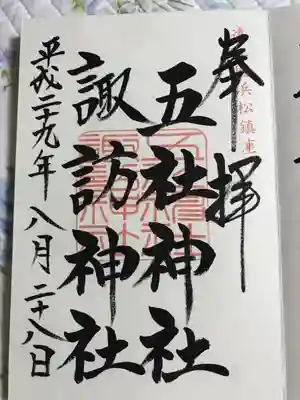 奉拝
浜松鎮座
五社神社
諏訪神社
平成二十九年八月二十八日